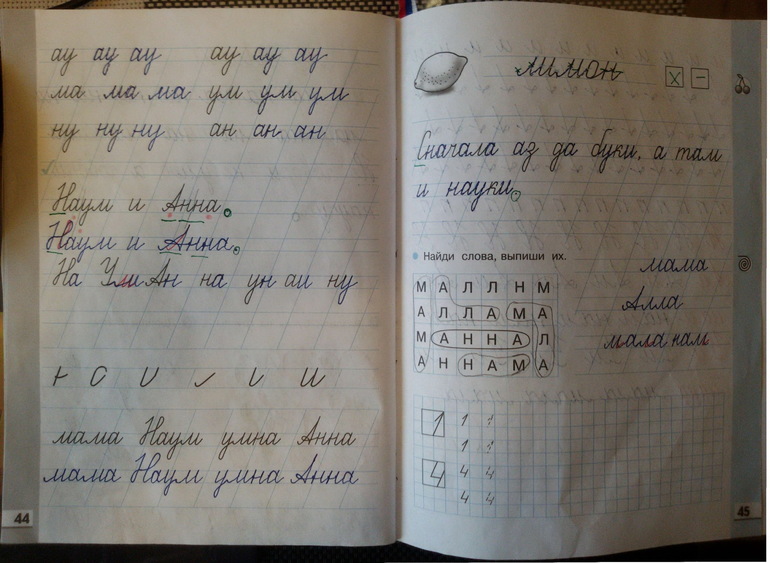 ау ау ау ау ау ау
ма ма ма ум ум ум
ну ну ну ан ан ан
Наум и Анна.
Наум и Анна.
На Ум Ан на ун аи ну
мама Наум умна Анна
мама Наум умна Анна
44
лимон
Сначала аз да буки, а там
и науки.
Найди слова, выпиши их.
М А Л Л Н М
А Л Л А М А
М А Н Н А Л
А Н Н А М А
мама
Алла
мала нам
1 1 1
1 1
4 4 4
4 4
45